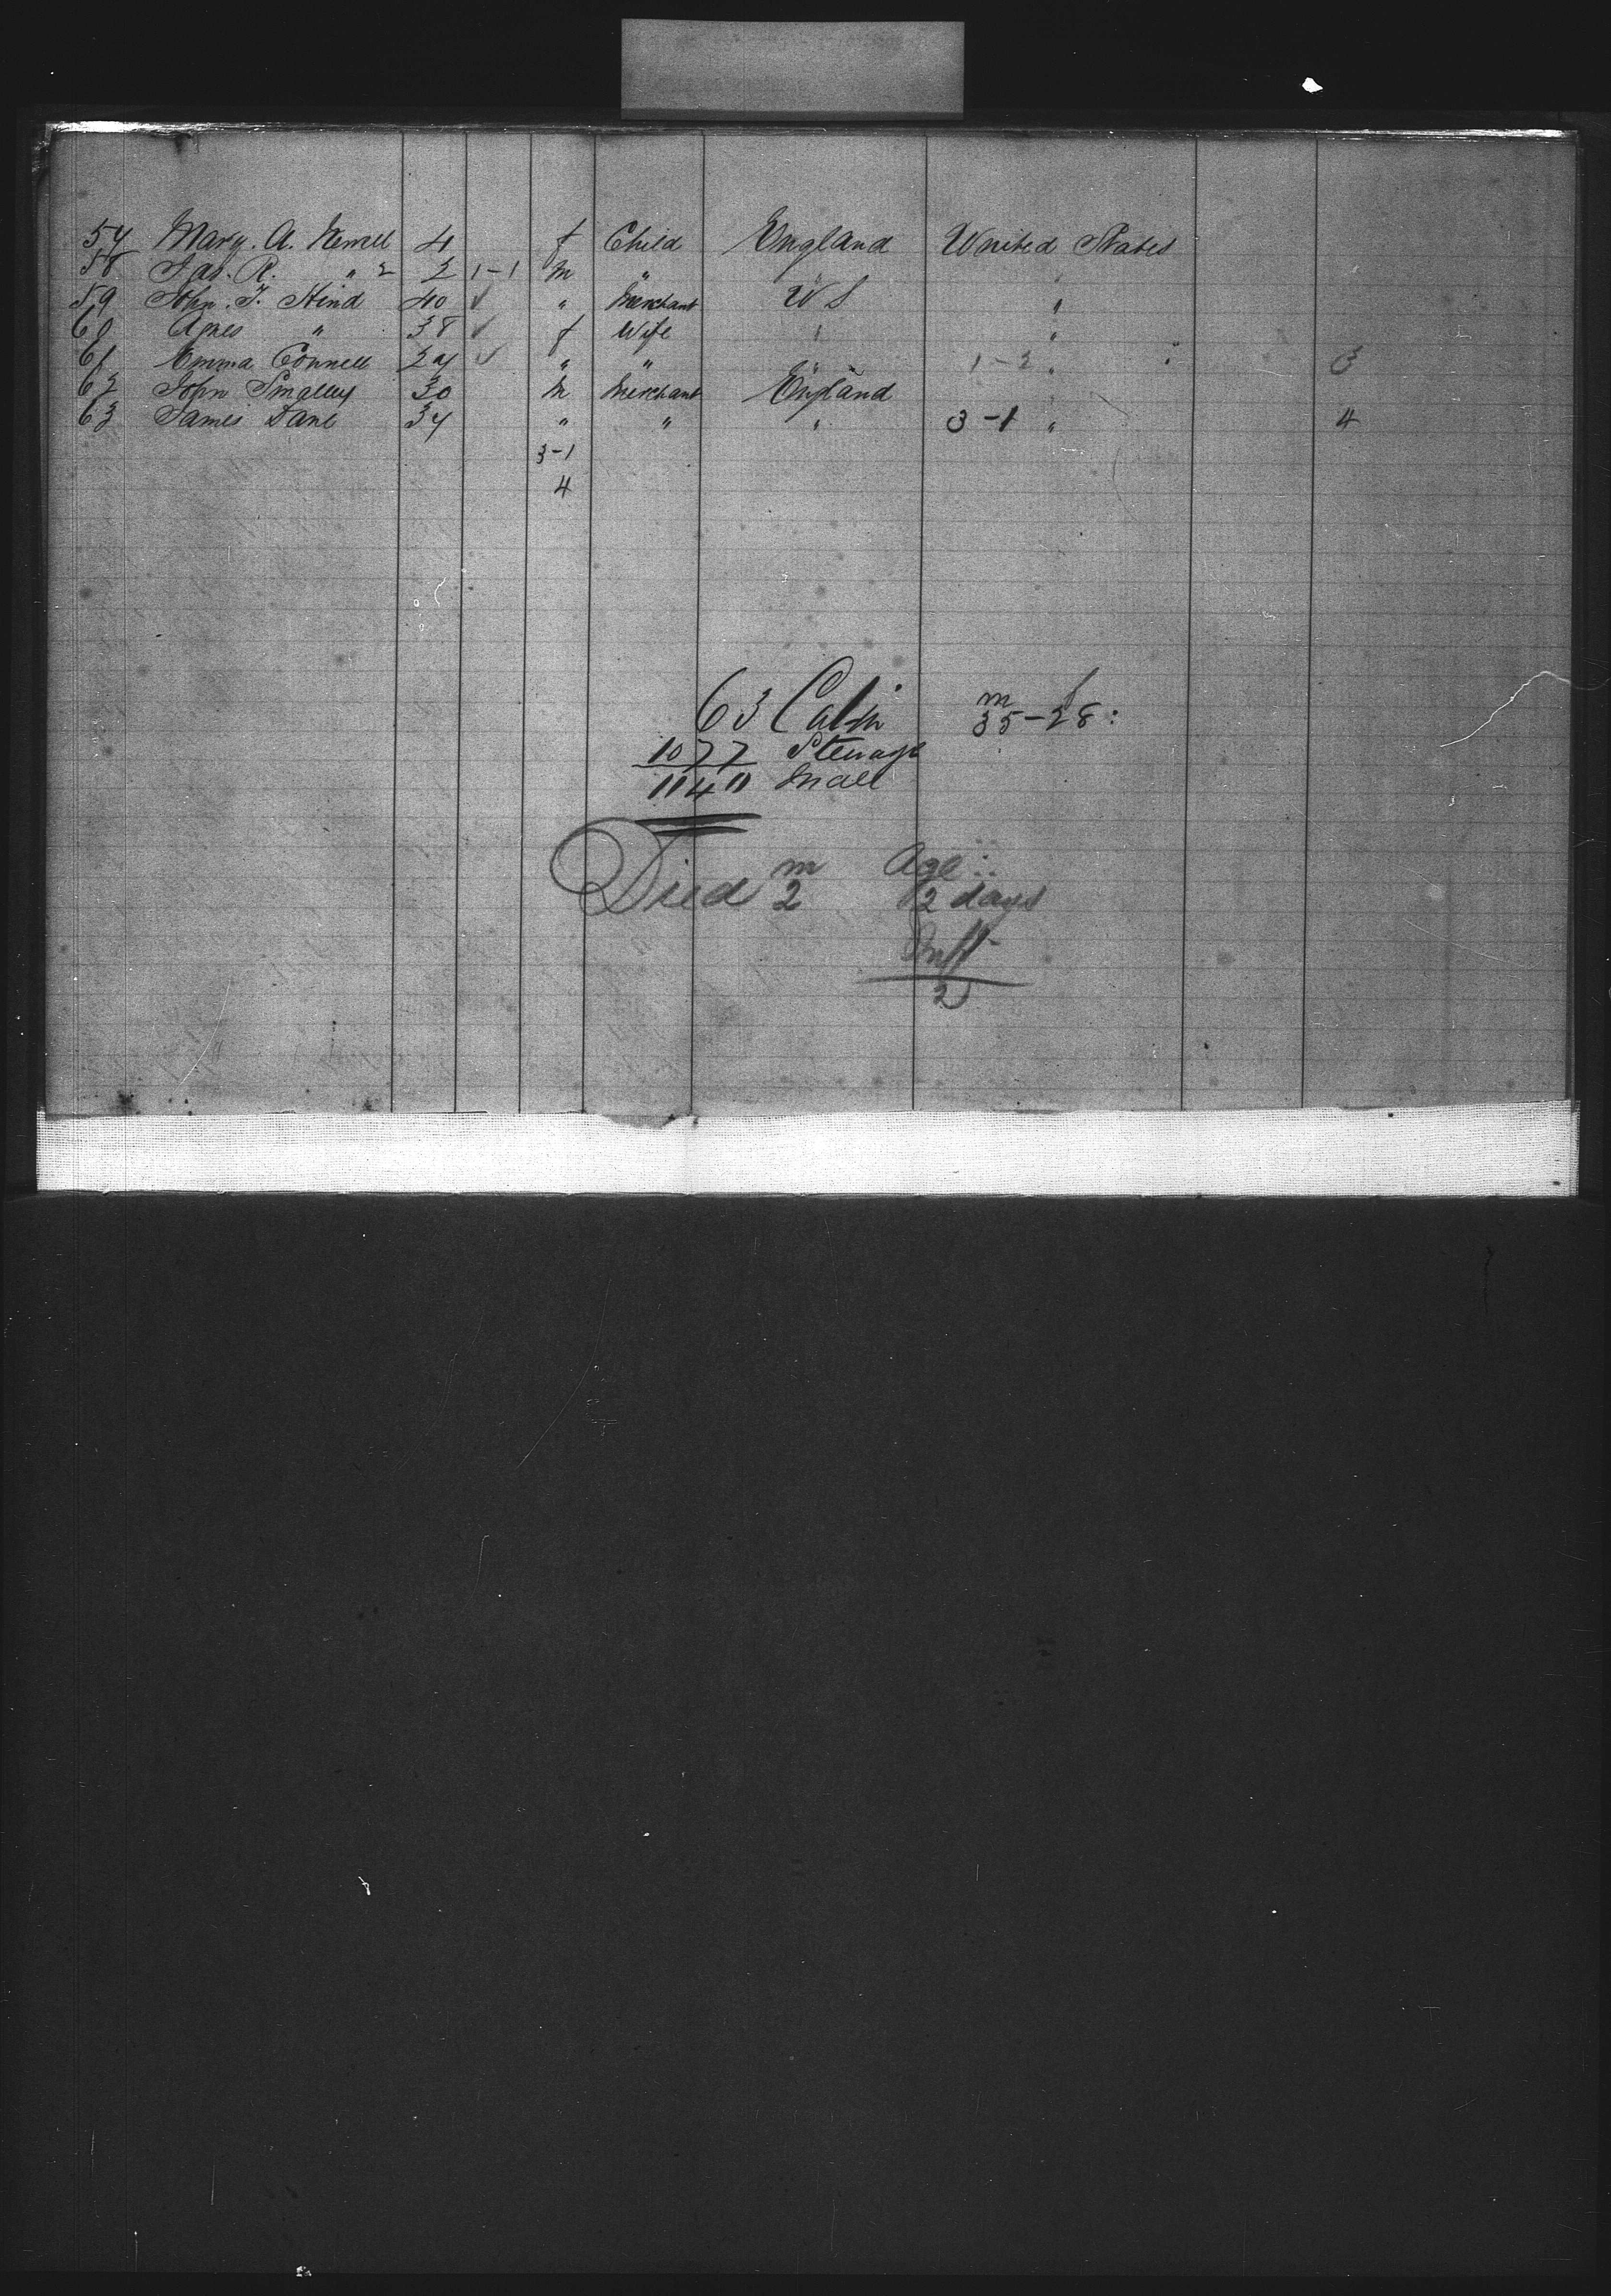 57 Mary. A. Kemell 4 f Child England United States
58 Jas. R. " 2 2 1-1 m " "
59 John. T. Hind 40 ✓ " Merchant U S "
60 Agnes " 38 ✓ f Wife " "
61 Emma Connell 27 ✓ " " " 1-2 " 3
62 John Smalley 30 m Merchant England "
63 James Dane 34 " " " 3-1 " 4
3-1
4
63 Cabin m 35 - f 28:
1077 Steerage
1140 in all
Died m 2 Age:
12 days
2